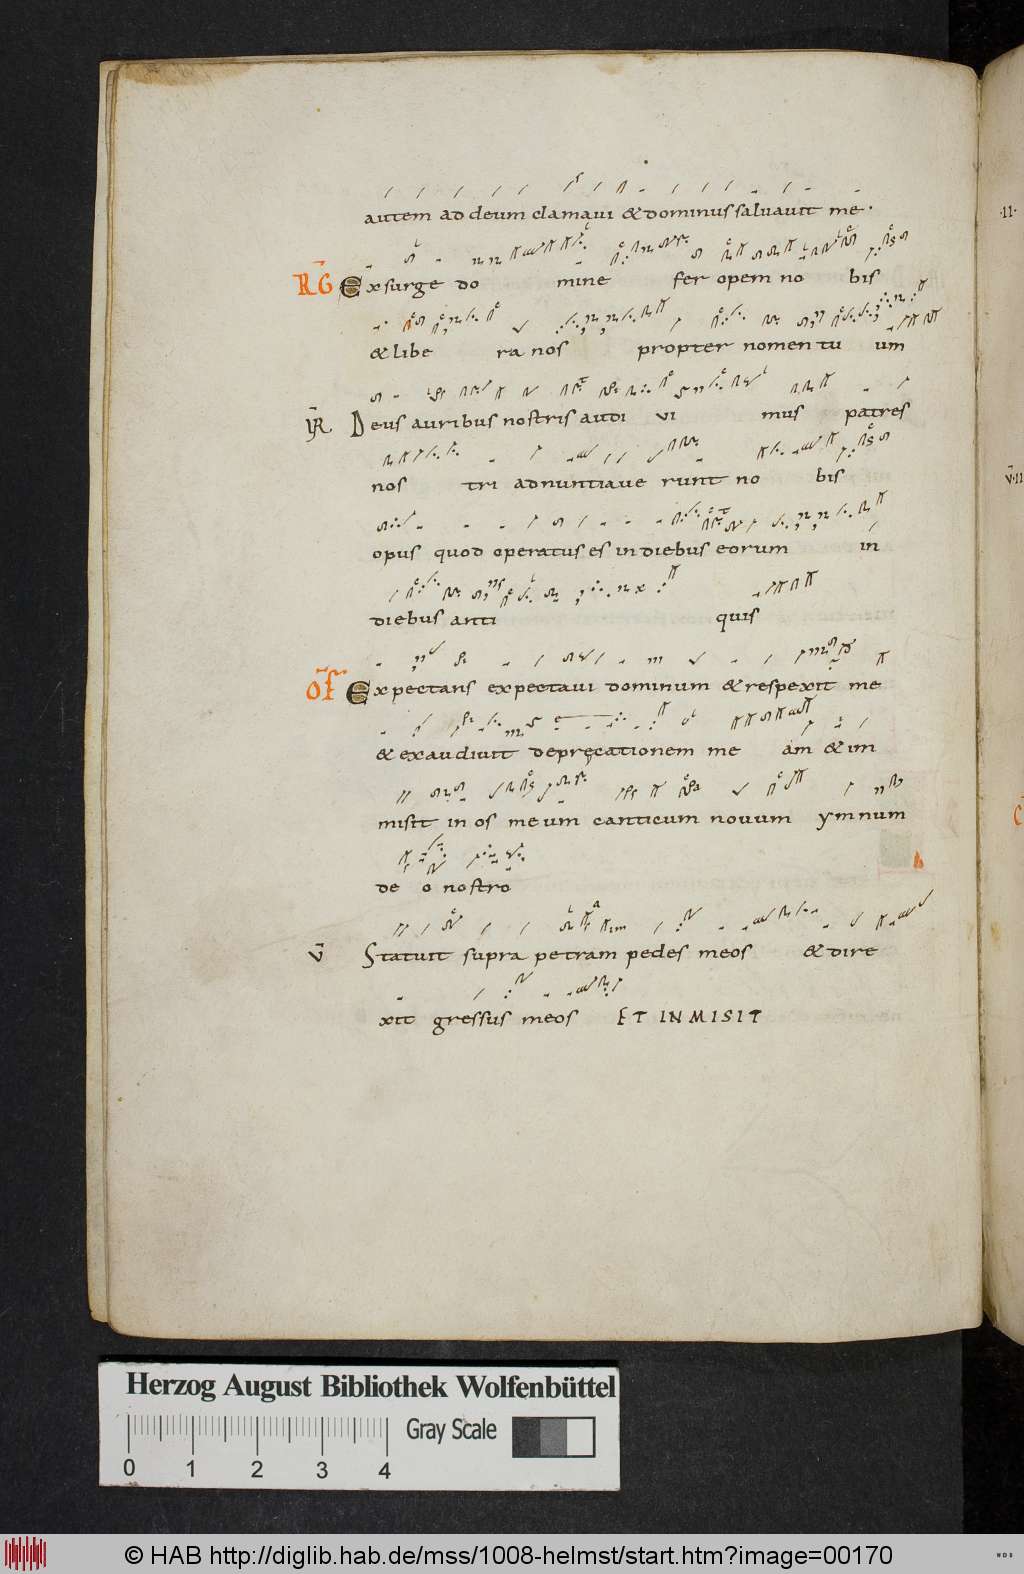 autem ad deum clamaui & dominus saluauit me.
RG Exsurge do mine fer opem no bis
& libe ra nos propter nomen tu um
V Deus auribus nostris audi vi mus patres
nos tri adnuntiaue runt no bis
opus quod operatus es in diebus eorum in
diebus anti quis
OF Expectans expectaui dominum & respexit me
& exaudiuit deprecationem me am & im
misit in os meum canticum nouum ymnum
de o nostro
V Statuit supra petram pedes meos & dire
xit gressus meos ET INMISIT
·II·
V·II
Herzog August Bibliothek Wolfenbüttel
Gray Scale
0 1 2 3 4
© HAB http://diglib.hab.de/mss/1008-helmst/start.htm?image=00170